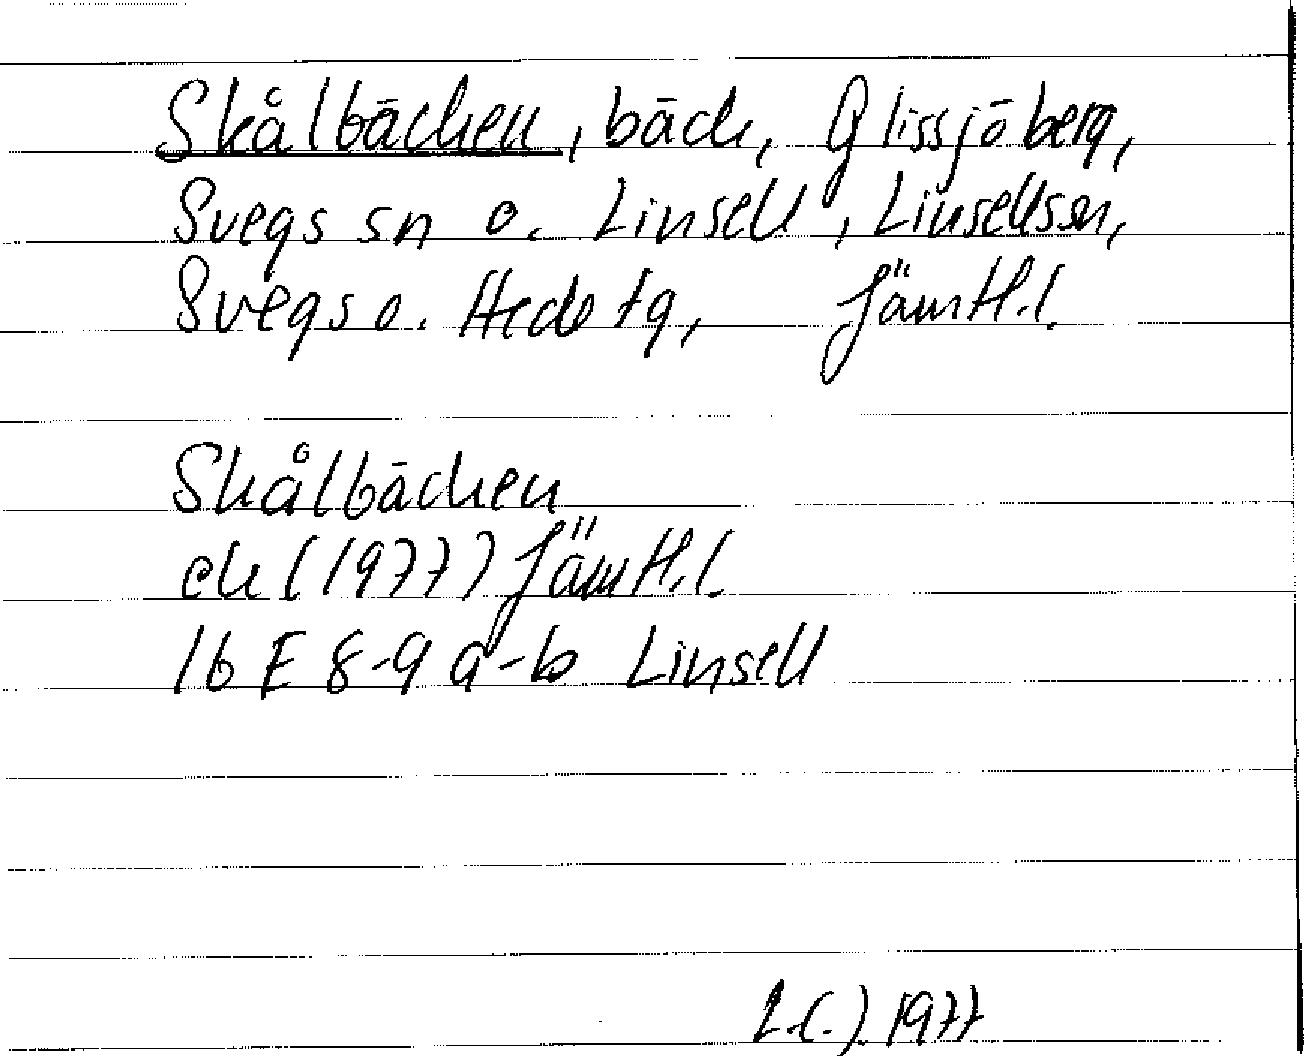 Skålbäcken, bäck, Glissjöberg,
Svegs sn o. Linsell, Linsellssn,
Svegs o. Hede tg, Jämtl.l.
Skålbäcken
ek (1977) Jämtl.l.
16 E 8-9 a-b Linsell
1977